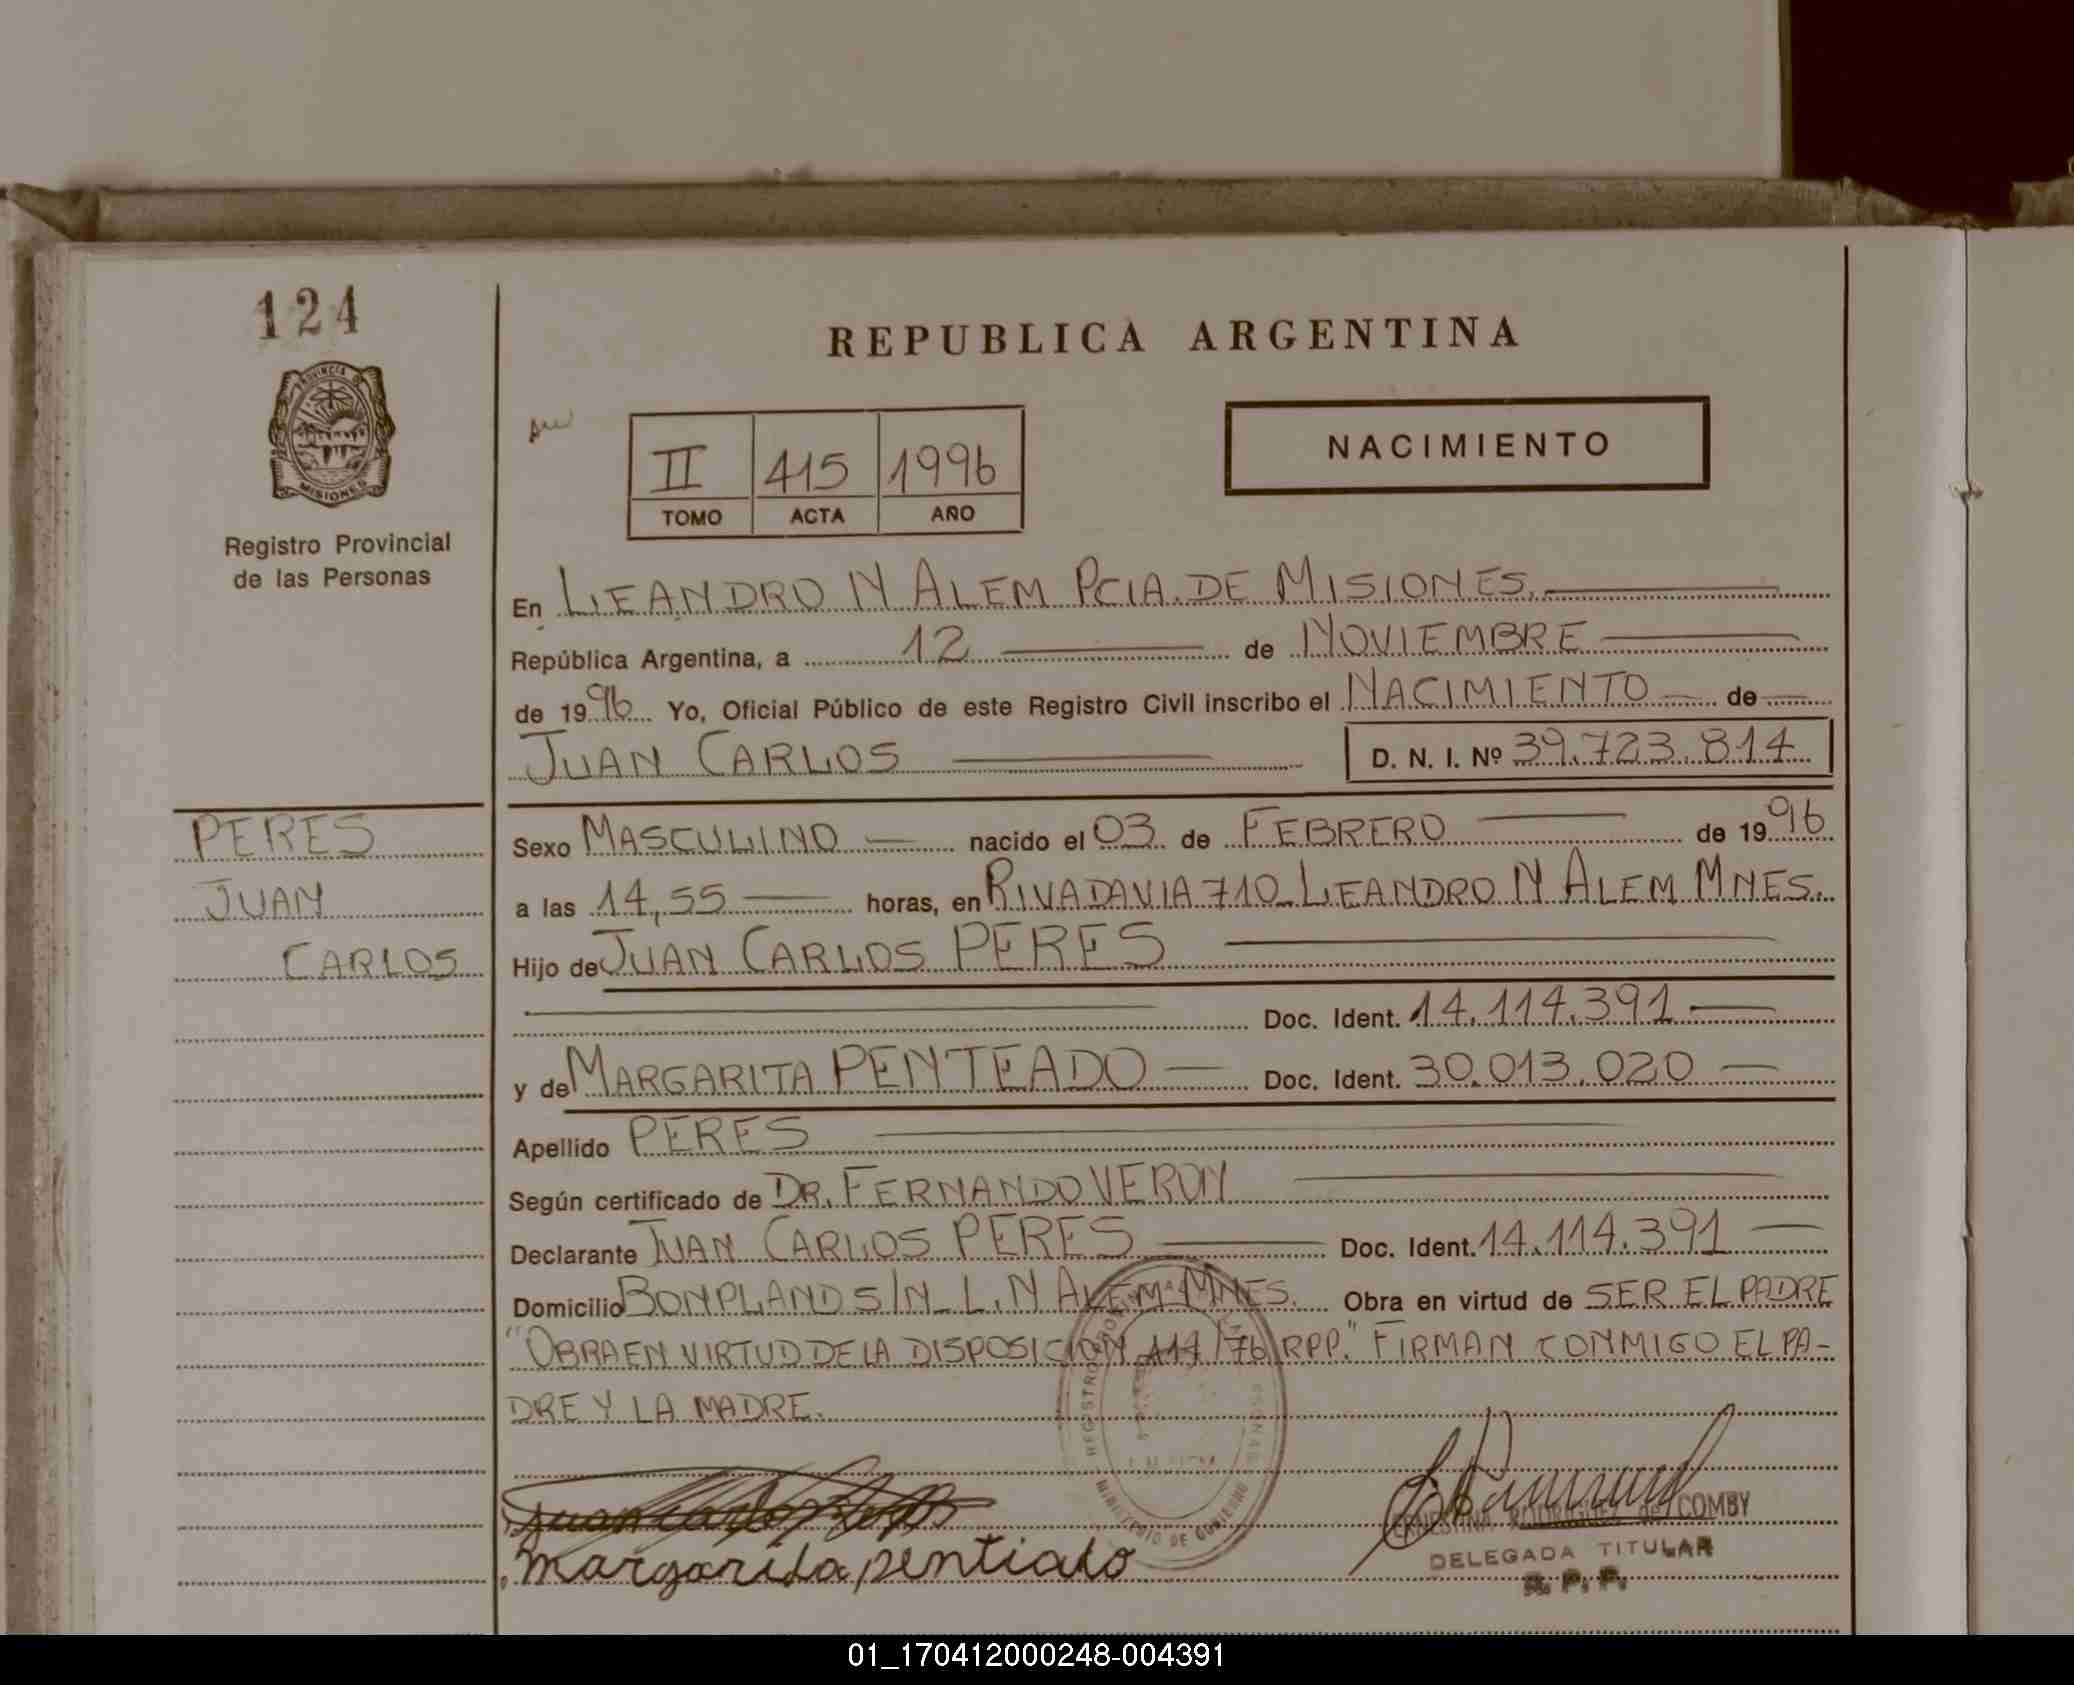 124
REPUBLICA ARGENTINA
PROVINCIA DE
MISIONES
Registro Provincial
de las Personas
II 415 1996
TOMO ACTA AÑO
NACIMIENTO
En LEANDRO N ALEM PCIA. DE MISIONES.
República Argentina, a 12 de NOVIEMBRE
de 1996 Yo, Oficial Público de este Registro Civil inscribo el NACIMIENTO de
JUAN CARLOS D. N. I. Nº 39.723.814
PERES
JUAN
CARLOS
Sexo MASCULINO nacido el 03 de FEBRERO de 1996
a las 14,55 horas, en RIVADAVIA 710 LEANDRO N ALEM MNES.
Hijo de JUAN CARLOS PERES
Doc. Ident. 14.114.391
y de MARGARITA PENTEADO Doc. Ident. 30.013.020
Apellido PERES
Según certificado de DR. FERNANDO VERON
Declarante JUAN CARLOS PERES Doc. Ident. 14.114.391
Domicilio BONPLAND S/N L. N ALEM MNES. Obra en virtud de SER EL PADRE
"OBRA EN VIRTUD DE LA DISPOSICION /76 RPP." FIRMAN CONMIGO EL PA-
DRE Y LA MADRE.
REGISTRO
MINISTERIO DE GOBIERNO
Juan Carlos
margarida pentiado
ERNESTINA RODRIGUEZ de COMBY
DELEGADA TITULAR
R. P. P.
01_170412000248-004391